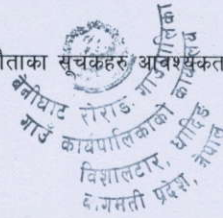 ीताका सूचकहरु आवश्यकत
बेनीघाट रोराङ गाउँपालिका
गाउँ कार्यपालिकाको कार्यालय
विशालटार, धादिङ
बागमती प्रदेश, नेपाल